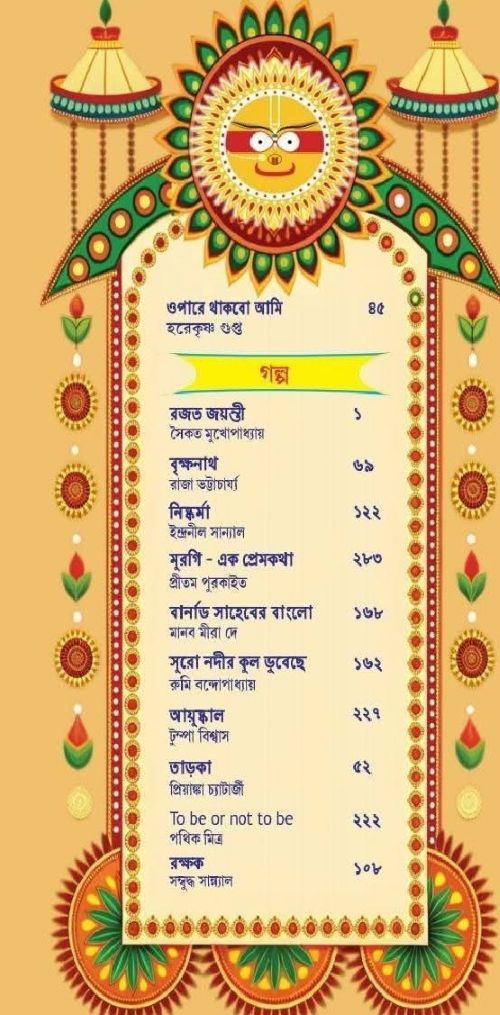 ওপারে থাকবো আমি ৪৫
হরেকৃষ্ণ গুপ্ত
গল্প
রজত জয়ন্তী ১
সৈকত মুখোপাধ্যায়
বৃক্ষনাথ ৬৯
রাজা ভট্টাচার্য্য
নিষ্কর্মা ১২২
ইন্দ্রনীল সান্যাল
মুরগি - এক প্রেমকথা ২৮৩
প্রীতম পুরকাইত
বার্নাড সাহেবের বাংলো ১৬৮
মানব মীরা দে
সূরো নদীর কূল ডুবেছে ১৬২
রুমি বন্দোপাধ্যায়
আয়ুষ্কাল ২২৭
টুম্পা বিশ্বাস
তাড়কা ৫২
প্রিয়াঙ্কা চ্যাটার্জী
To be or not to be ২২২
পথিক মিত্র
রক্ষক ১০৮
সম্বুদ্ধ সান্ন্যাল